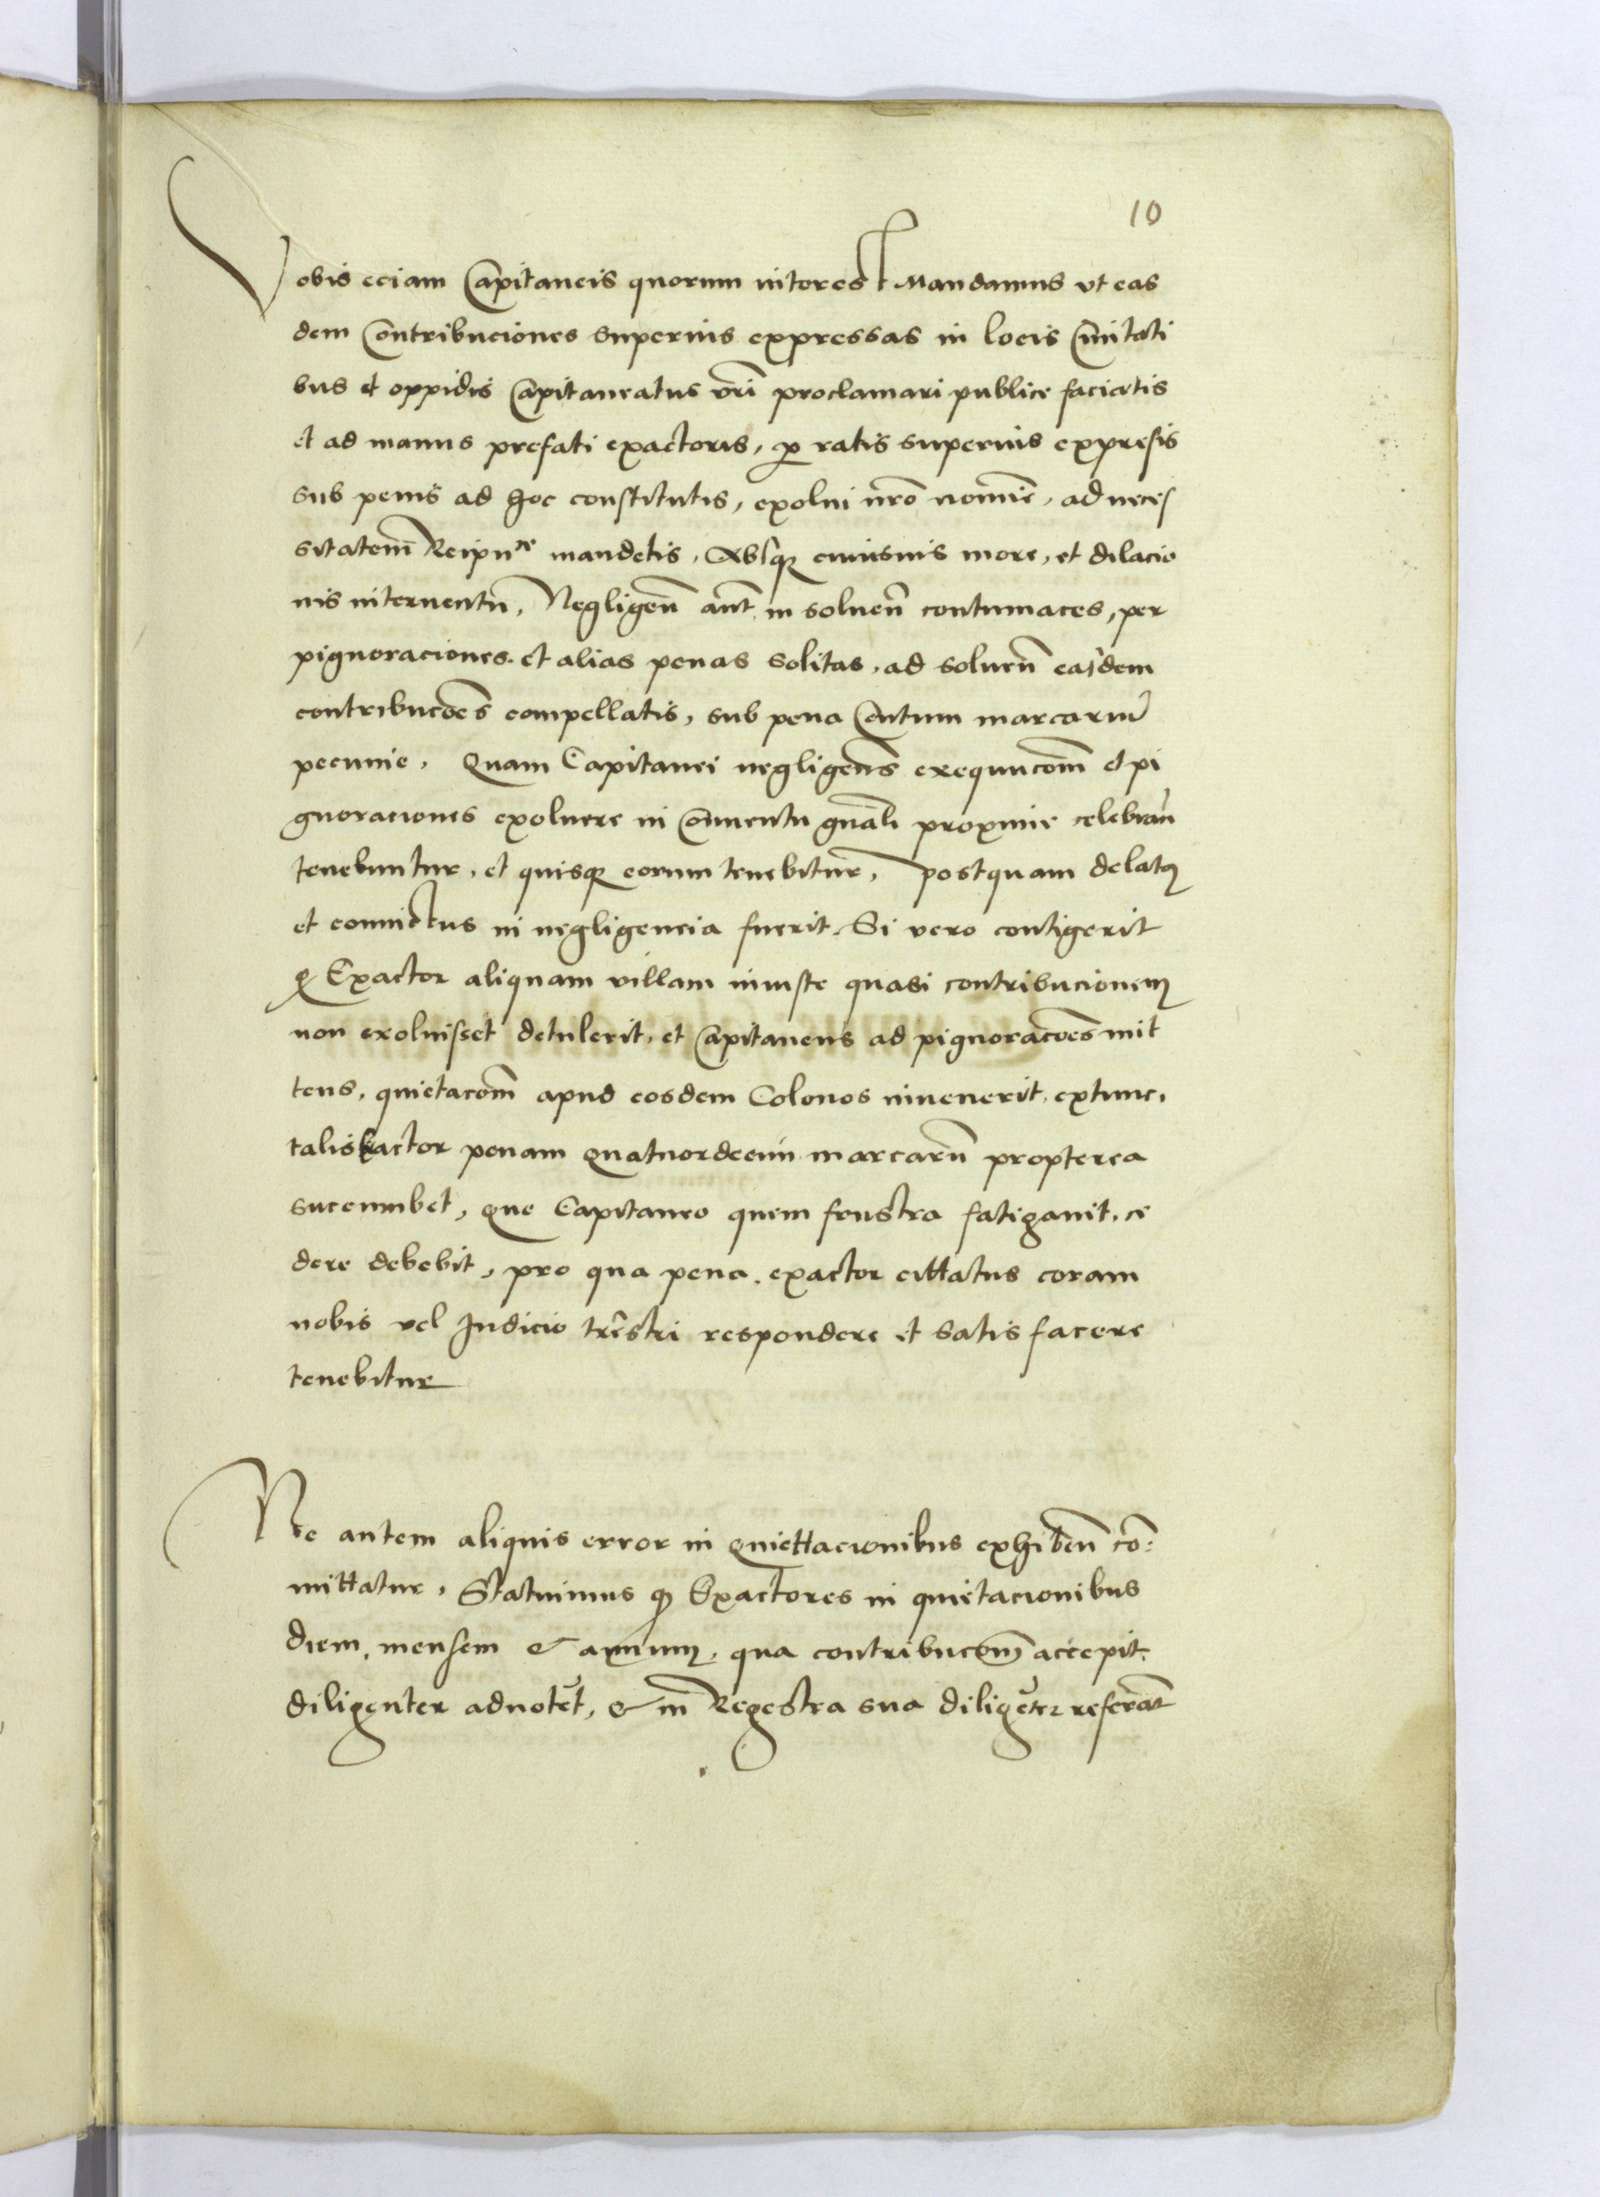 10
Vobis eciam Capitaneis quorum interest Mandamus vt eas
dem Contribuciones superius expressas in locis Civitati
bus et oppidis Capitaneatus vri proclamari publice faciatis
et ad manus prefati exactoris, p ratis superius expresis
sub penis ad hoc constitutis, exolui nro nomine, ad neces
sitatem Reipu ce mandetis, Absque cuiusuis more, et dilacio
nis interuentu, Negligen aut in soluen contumaces, per
pignoraciones. et alias penas solitas, ad soluen easdem
contribucoes compellatis, sub pena Centum marcarum
pecunie, Quam Capitanei negligens exequucom et pi
gnoraciones exoluere in Conuentu gnali proxime celebran
tenebuntur, et quisque eorum tenebitur, postquam delatus
et conuictus in negligencia fuerit. Si vero contigerit
q Exactor aliquam villam iniuste quasi contribucionem
non exoluisset detulerit, et Capitaneus ad pignoracoes mit
tens, quietacom apud eosdem Colonos inuenerit, extunc,
talis Exactor penam quatuordecim marcaru propterea
succumbet, que Capitaneo quem frustra fatigauit, ce
dere debebit, pro qua pena, exactor cittatus coram
nobis vel Iudicio trestri respondere et satis facere
tenebitur
Ne autem aliquis error in quiettacionibus exhiben co=
mittatur, Statuimus q Exactores in quietacionibus
diem, mensem & annum, qua contribucom accepit,
diligenter adnotet, & in Regestra sua diligeter referat